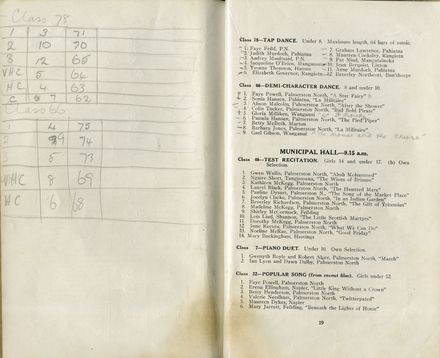 Class 78
1 3 71
2 10 70
3 12 65
VHC 5 64
HC 4 63
C 7 62
Class 66
4 75
9 74
5 73
VHC 8 69
HC 6 68
Class 78—TAP DANCE. Under 8. Maximum length, 64 bars of music.
1. Faye Feild, P.N.
2. Judith Murdoch, Pahiatua
3. Audrey Maultsaid, P.N.
4. Jacqueline O'Brien, Mangamutu
5. Yvonne Thomson, Havena
6. Elizabeth Governor, Rangiotu
7. Graham Lawrence, Pahiatua
8. Maureen Cooksley, Rangiotu
9. Pat Nind, Mangatainoka
10. Jean Bergquist, Linton
11. Anne Murdoch, Pahiatua
12. Beverley Northcott, Dan'thorpe
Class 66—DEMI-CHARACTER DANCE. 8 and under 10.
1. Faye Powell, Palmerston North, "A Star Fairy"
2. Sonia Hansen, Pahiatua, "La Militaire"
3. Alison Malcolm, Palmerston North, "After the Shower"
4. Colin Tucker, Palmerston North, "Bad Bold Pirate"
5. Gloria Milliken, Wanganui
6. Pamela Hansen, Palmerston North, "The Pied Piper"
7. Betty Meiheth, Marton
8. Barbara Jones, Palmerston North, "La Militaire"
9. Gael Gibson, Wanganui
MUNICIPAL HALL—9.15 a.m.
Class 46—TEST RECITATION. Girls 14 and under 17. (b) Own
Selection.
1. Gwen Wallis, Palmerston North, "Abdh Mohammed"
2. Ngaire Short, Tangimoana, "The Wives of Brixnu"
3. Kathleen McKegg, Palmerston North
4. Laurel Black, Palmerston North, "The Haunted Mere"
5. Pauline Dysart, Palmerston N., "The Song of the Market Place"
6. Jocelyn Clarke, Palmerston North, "In an Indian Garden"
7. Beverley Richardson, Palmerston North, "The Gift of Tritemius"
8. Madeline McKegg, Palmerston North
9. Shirley McCormack, Feilding
10. Lois Lind, Shannon, "The Little Scottish Martyrs"
11. Dorothy McKegg, Palmerston North
12. June Reeves, Palmerston North, "What We Can Do"
13. Noeline McRae, Palmerston North, "Good Friday"
14. Mary Buckingham, Hastings
Class 7—PIANO DUET. Under 10. Own Selection.
1. Gwenyth Boyle and Robert Alger, Palmerston North, "March"
2. Ian Lyon and Dawn Dalby, Palmerston North
Class 32—POPULAR SONG (from recent film). Girls under 12.
1. Faye Powell, Palmerston North
2. Erena Ellingham, Napier, "Little King Without a Crown"
3. Betty Henderson, Palmerston North
4. Valerie Needham, Palmerston North, "Twitterpated"
5. Maureen Dykes, Napier
6. Mary Jarrett, Feilding, "Beneath the Lights of Home"
19